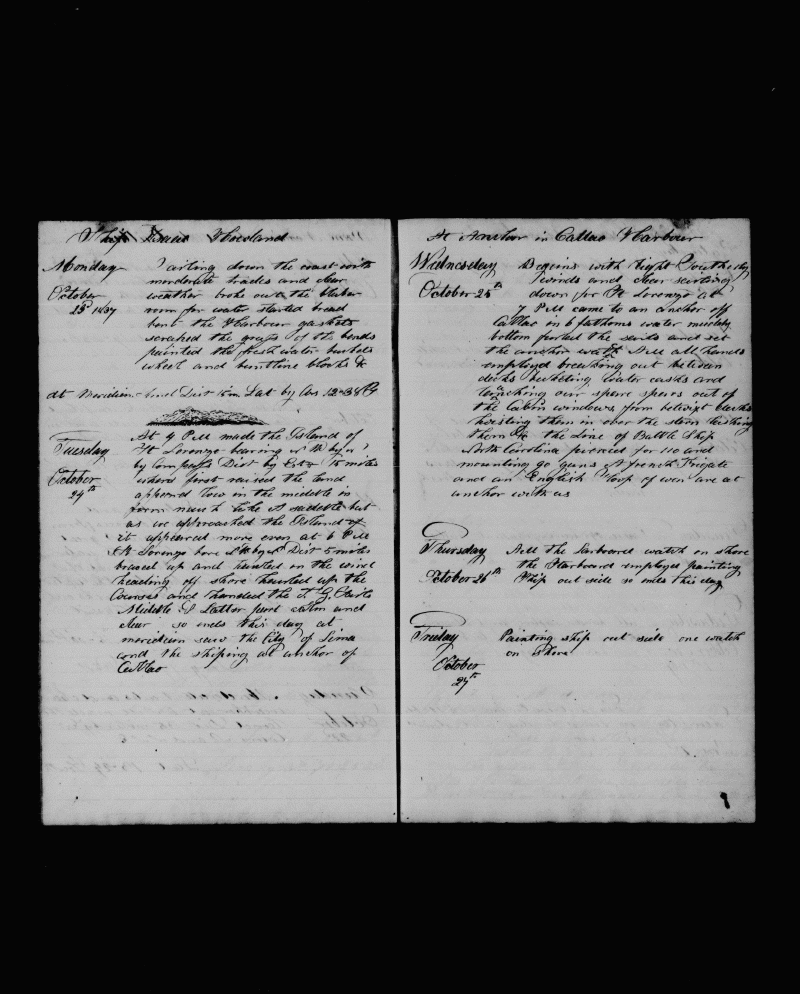 Ship Isaac Howland
Monday
October
23d 1837
Sailing down the coast with
moderate trades and clear
weather broke out the blubber
room for water started bread
bent the Harbour gaskets
scraped the of the bends
painted the fresh water buckets
wheel and buntline blocks &c
at Meridian land Dist 15m Lat by Obs 12=38
Tuesday
October
24th
At 4 PM made the Island of
St Lorenzo bearing
by compass Dist by Est 15 miles
when first raised the land
appeard low in the middle in
form much like A saddle but
as we approached the Island
it appeared more even at 6 PM
St Lorenzo bore Dist 5 miles
braced up and hauled on the wind
heading off shore hauled up the
Courses and handed the T G Sails
Middle & Latter part calm and
clear so ends this day at
meridian saw the City of Lima
and the shiping at anchor of
Callao
At Anchor in Callao Harbour
Wednesday
October 25th
Begins with light Southerly
winds and clear
down for St Lorenzo at
7 PM came to an anchor off
Callao in 6 fathoms water muddy
bottom furled the sails and set
the anchor watch AM all hands
employd breaking out between
decks water casks and
our spare spars out of
the Cabin windows from betwixt decks
hoisting them in over the stern lashing
them &c the Line of Battle Ship
North Carolina pierced for 110 and
mounting 90 guns A french Frigate
and an English of war are at
anchor with us
Thursday
October 26th
AM the Larboard watch on shore
the Starboard employd painting
Ship out side so ends this day
Friday
October
27th
Painting ship out side one watch
on shore